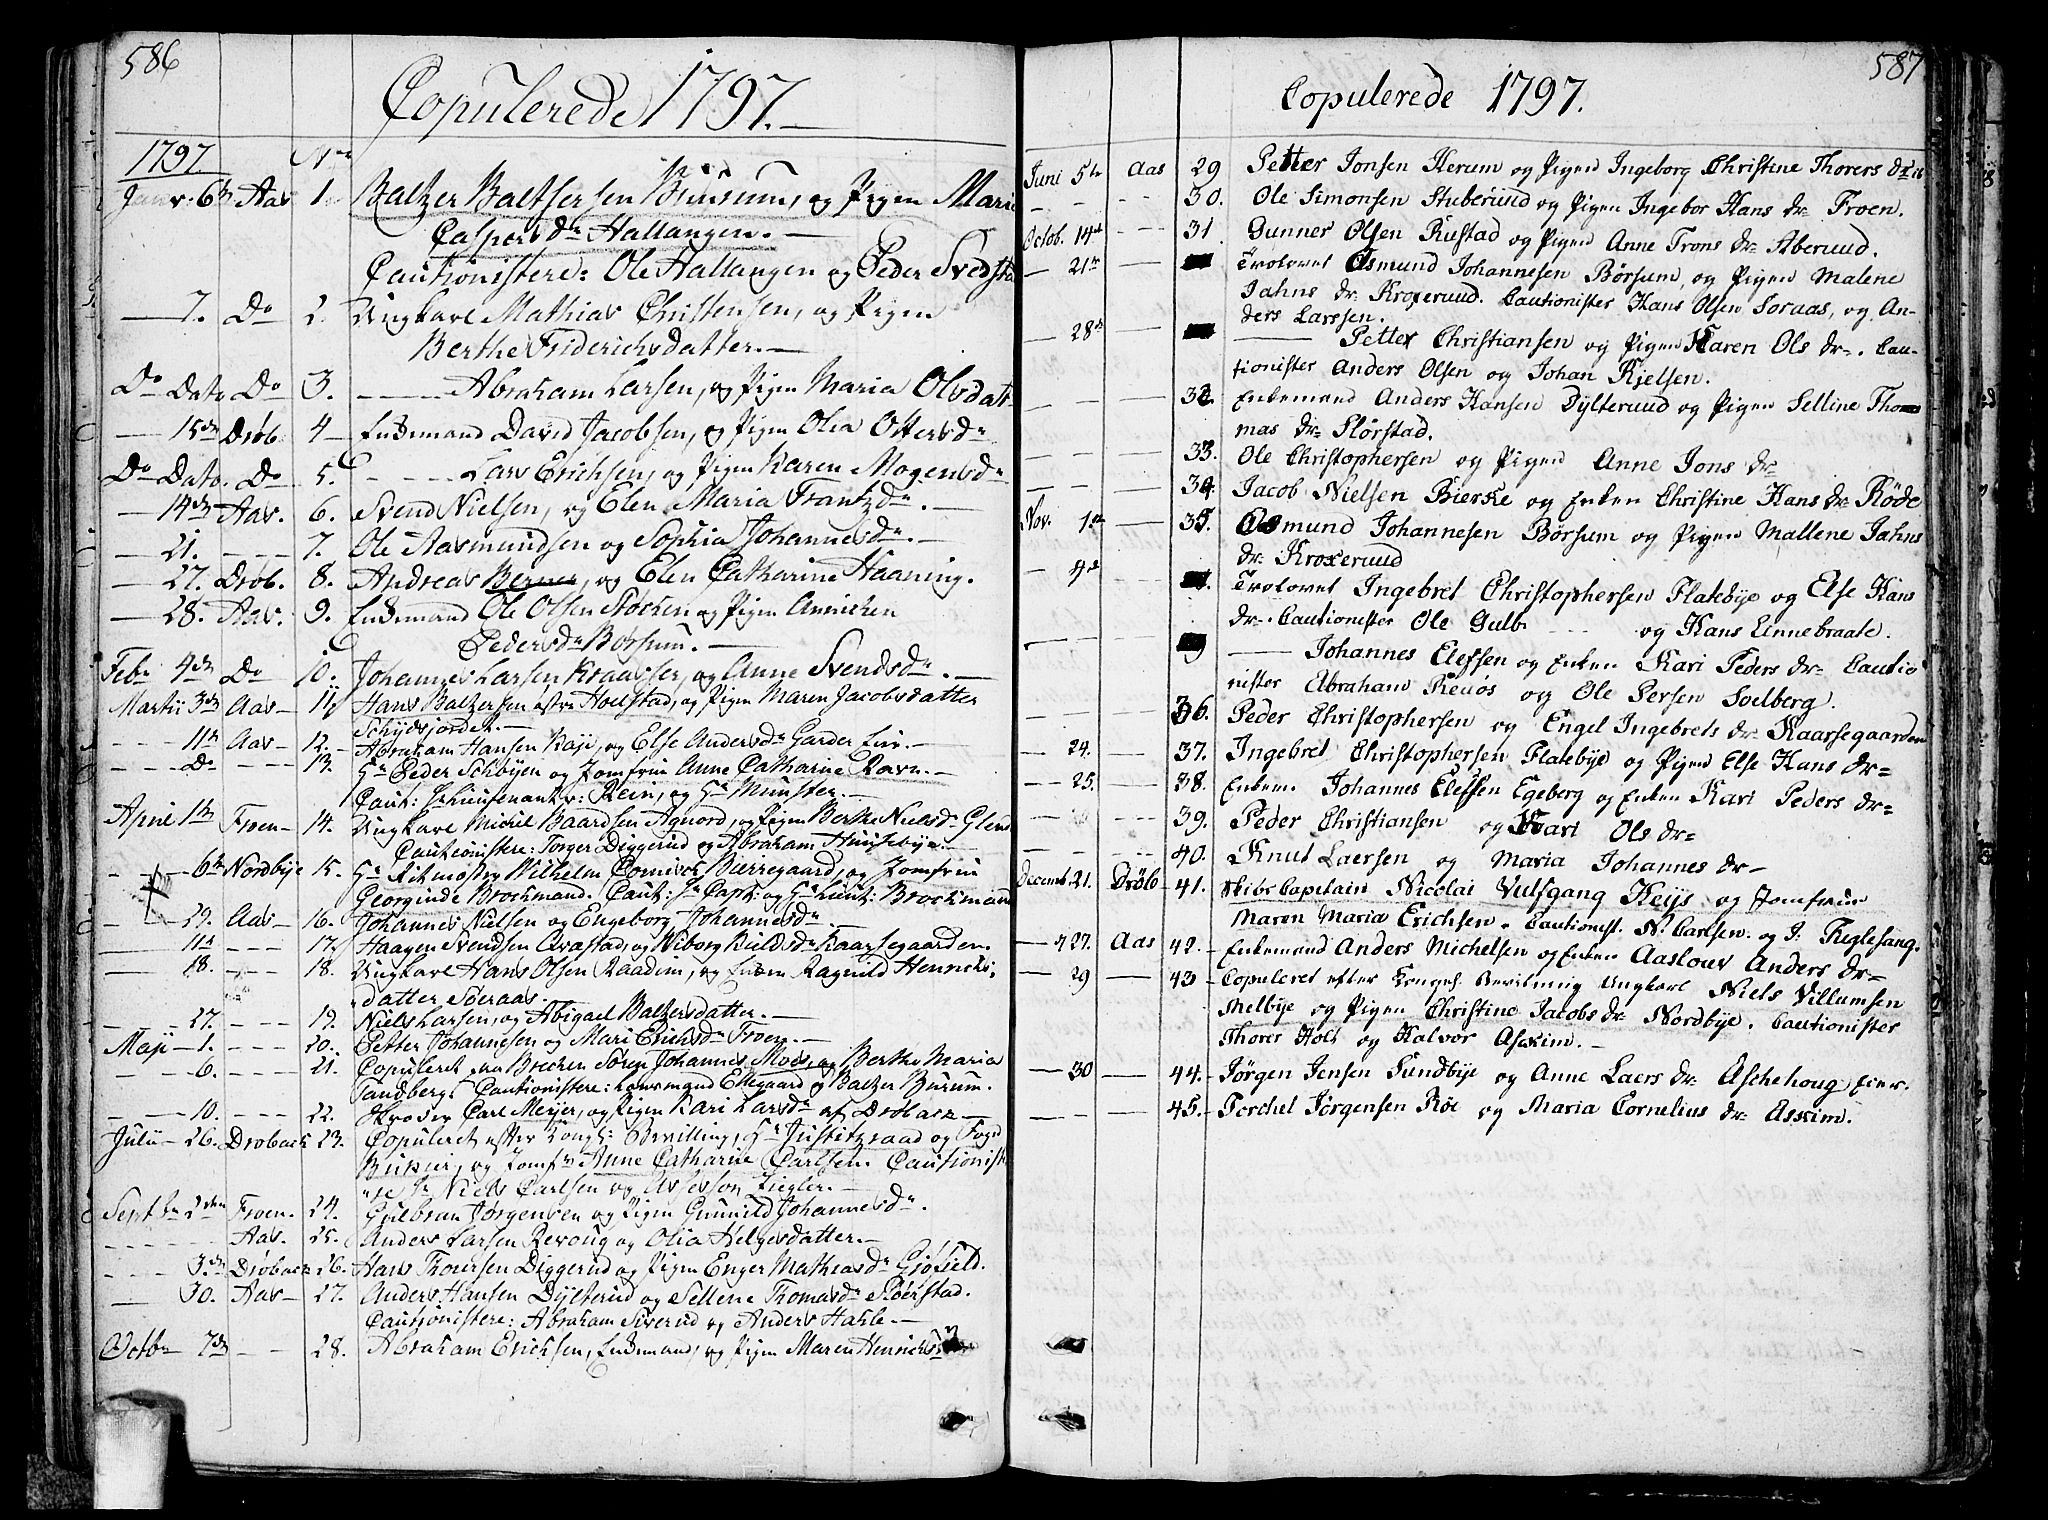 586
Copulerede 1797.
1797 No
Janv. 6te Aas 1. Baltzer Baltsersen Bürsum, og Pigen Mari
Caspersdr Hallangen.
Cautionistere: Ole Hallangen og Peder Svedsta
— 7. Do 2. Ungkarl Mathias Christensen, og Pigen
Berthe Friderichsdatter.
Do Dato Do 3. — Abraham Larsen, og Pigen Maria Olsdat
— 15de Dröb. 4 — Enkemand David Jacobsen, og Pigen Olia Ottersdr
Do Dato. Do 5. — Lars Erichsen, og Pigen Karen Mogensdr
— 14de Aas. 6. Svend Nielsen, og Elen Maria Frantzdr.
— 21. --- 7. Ole Aasmundsen og Sophia Johannesdr.
— 27. Dröb. 8. Andreas Berner, og Elen Catharine Haaning.
— 28. Aas. 9. Enkemand Ole Olsen Stocken og Pigen Annichen
Pedersdr Börsum.
Febr 4de Do 10. Johannes Larsen Kraasser, og Anne Svendsdr.
Martii 3de Aas 11. Hans Baltzersen östre Hoelstad, og Pigen Maren Jacobsdatter
Schydsjordet.
--- 11te Aas 12. Abraham Hansen Kaje, og Else Andersdr Garder Eie.
--- Do --- 13. Hr Peder Schbyen og Jomfru Anne Catharine Ravn.
Caut: Hr Lieutenant v: Rein, og Hr Munster.
April 1te Froen 14. Ungkarl Michel Baardsen Agnord, og Pigen Berthe Nielsdr Glend
Cautionistere: Torger Diggerud og Abraham Huusebye.
--- 6te Nordbye 15. Hr Ritmester Wilhelm Cornisch Bierregaard, og Jomfru
Georginde Brochmand. Caut: Hr Capt: og Hr Lieut: Brochmand
--- 29. Aas 16. Johannes Nielsen og Engeborg Johannesdr.
--- 11te --- 17. Haagen Svendsen Qvæstad, og Viborg Buldsdr Kaarsegaarden.
--- 18. --- 18. Ungkarl Hans Olsen Raadim, og Enken Ragnild Henrichs
datter Söeraas.
--- 27. --- 19. Niels Larsen, og Abigael Baltzersdatter.
Maji 1. --- 20. Petter Johannesen og Mari Erichsdr Froen.
--- 6. --- 21. Copuleret paa Brechen Sören Johannes Moss, og Berthe Maria
Sandberg. Cautionistere: Lensmand Ellegaard og Baltzer Bürum.
--- 10. --- 22. Skræder Carl Meyer, og Pigen Kari Larsdr af Dröbach
Julii 26. Dröbach 23. Copuleret efter Kongl: Bevilling, Hr Justitzraad og Fogd
og Jomfru Anne Catharine Carlsen. Cautionist
Hr Niels Carlsen og Assessor Ziegler.
Septbr 2den Froen. 24. Gulbran Jörgensen og Pigen Gunnild Johannesdr.
--- Aas. 25. Anders Larsen Revoug og Olia Helgesdatter.
--- 3de Dröbach 26. Hans Thoersen Diggerud og Pigen Enger Mathiasdr Gjöfield.
--- 30. Aas 27. Anders Hansen Dylterud og Sellene Thomasdr Slöerstad.
Cautionistere: Abraham Siverud og Anders Hahle.
Octbr 7de --- 28. Abraham Erichsen, Enkemand, og Pigen Maren Henrichs
587
Copulerede 1797.
Juni 5te Aas 29 Petter Jonsen Herum og Pigen Ingeborg Christine Thorers dr
--- 30. Ole Simonsen Stuberüd og Pigen Ingebor Hans dr Froen.
Octob. 14de --- 31 Gunner Olsen Rustad og Pigen Anne Trons dr Aberuud.
— 21te --- Trolovet Osmund Johannesen Börsum, og Pigen Malene
Jahns dr Kroxeruud. Cautionister Hans Olsen Soraas, og An-
ders Larssen.
— 28de --- Petter Christiansen og Pigen Karen Ols dr. Cau-
tionister Anders Olsen og Johan Kjelsen.
--- 32. Enkemand Anders Hansen Dylteruud og Pigen Selline Tho
mas dr Slörstad.
--- 33. Ole Christophersen og Pigen Anne Jons dr
--- 34. Jacob Nielsen Bierske og Enken Christine Hans dr Röde
Nov. 1te --- 35. Osmund Johannesen Börsum og Pigen Mallene Jahns
dr Kroxeruud
— 4de --- Trolovet Ingebret Christophersen Flatebye og Else Hans
dr. Cautionister Ole Gulb --- og Hans Linnebraate.
--- Johannes Elefsen og Enken Kari Peders dr Cautio
nister Abraham Revos og Ole Persen Solberg.
--- 36. Peder Christophersen og Engel Ingebrets dr Kaarsegaarden
— 24. --- 37. Ingebret Christophersen Flatebye og Pigen Else Hans dr
— 25. --- 38. Enkem. Johannes Elefsen Egeberg og Enken Kari Peders dr
--- 39. Peder Christiansen og Kari Ols dr
--- 40. Knut Laersen og Maria Johannes dr
Decemb. 21. Dröb 41. Skibs Capitain Nicolai Vulfgang Keys og Jomfrue
Maren Maria Erichsen. Cautionist. N. Carlsen. og J. Teglesang.
— 27. Aas 42. Enkemand Anders Michelsen og Enken Aaslour Anders dr
— 29 --- 43 Copuleret efter Konges Bevilning Ungkarl Niels Villumsen
Melbye og Pigen Christine Jacobs dr Nordbye. Cautionister
Thorer Holt og Halvor Askim.
— 30 --- 44. Jörgen Jensen Sundbye og Anne Laers dr Aschehoug Eier.
--- 45. Torchel Jörgensen Röe og Maria Cornelius dr Askim.